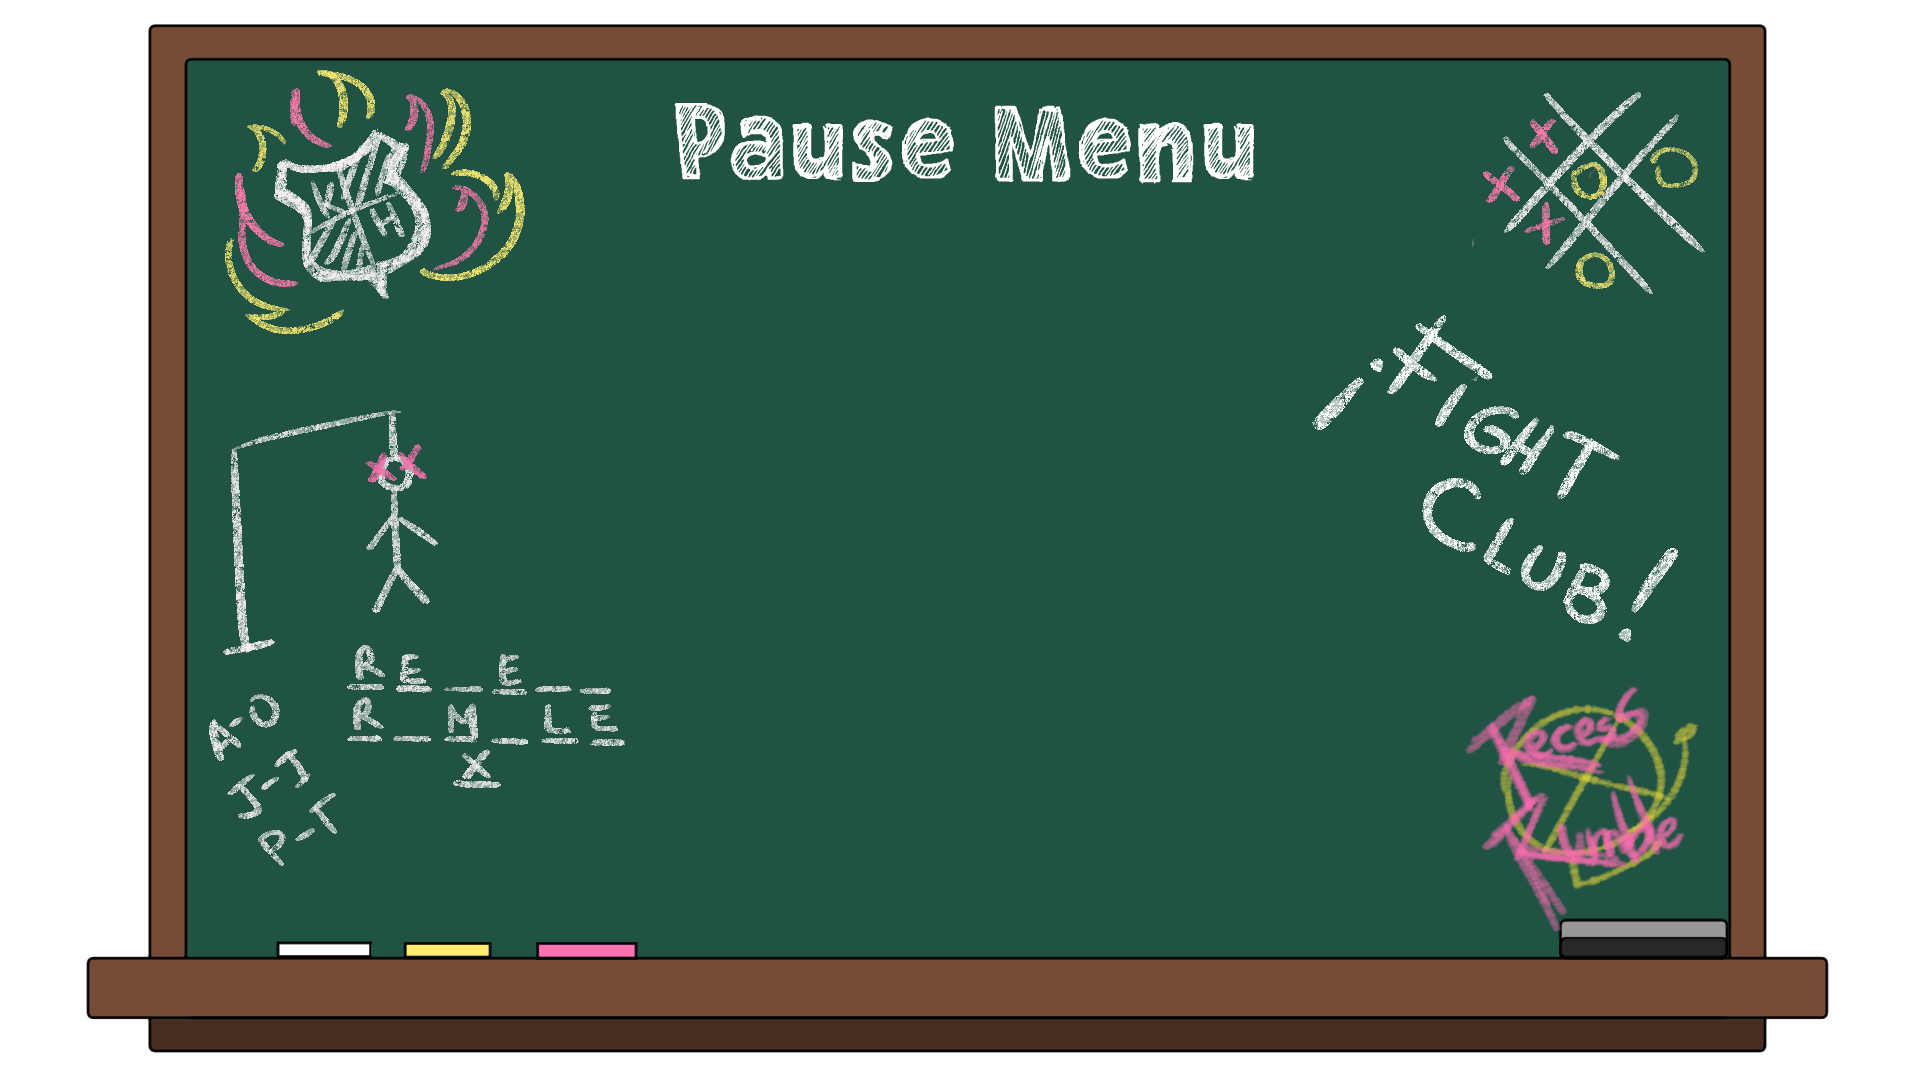 Pause Menu
K H
¡FIGHT
CLUB!
R E _ E _ _
R _ M _ L E
X
A-O
J-J
P-T
Recess
Rumble